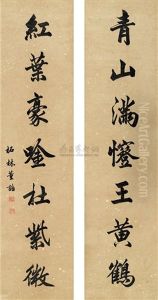 青山滿王黃鶴
紅葉豪吟杜紫微
柘林董誥